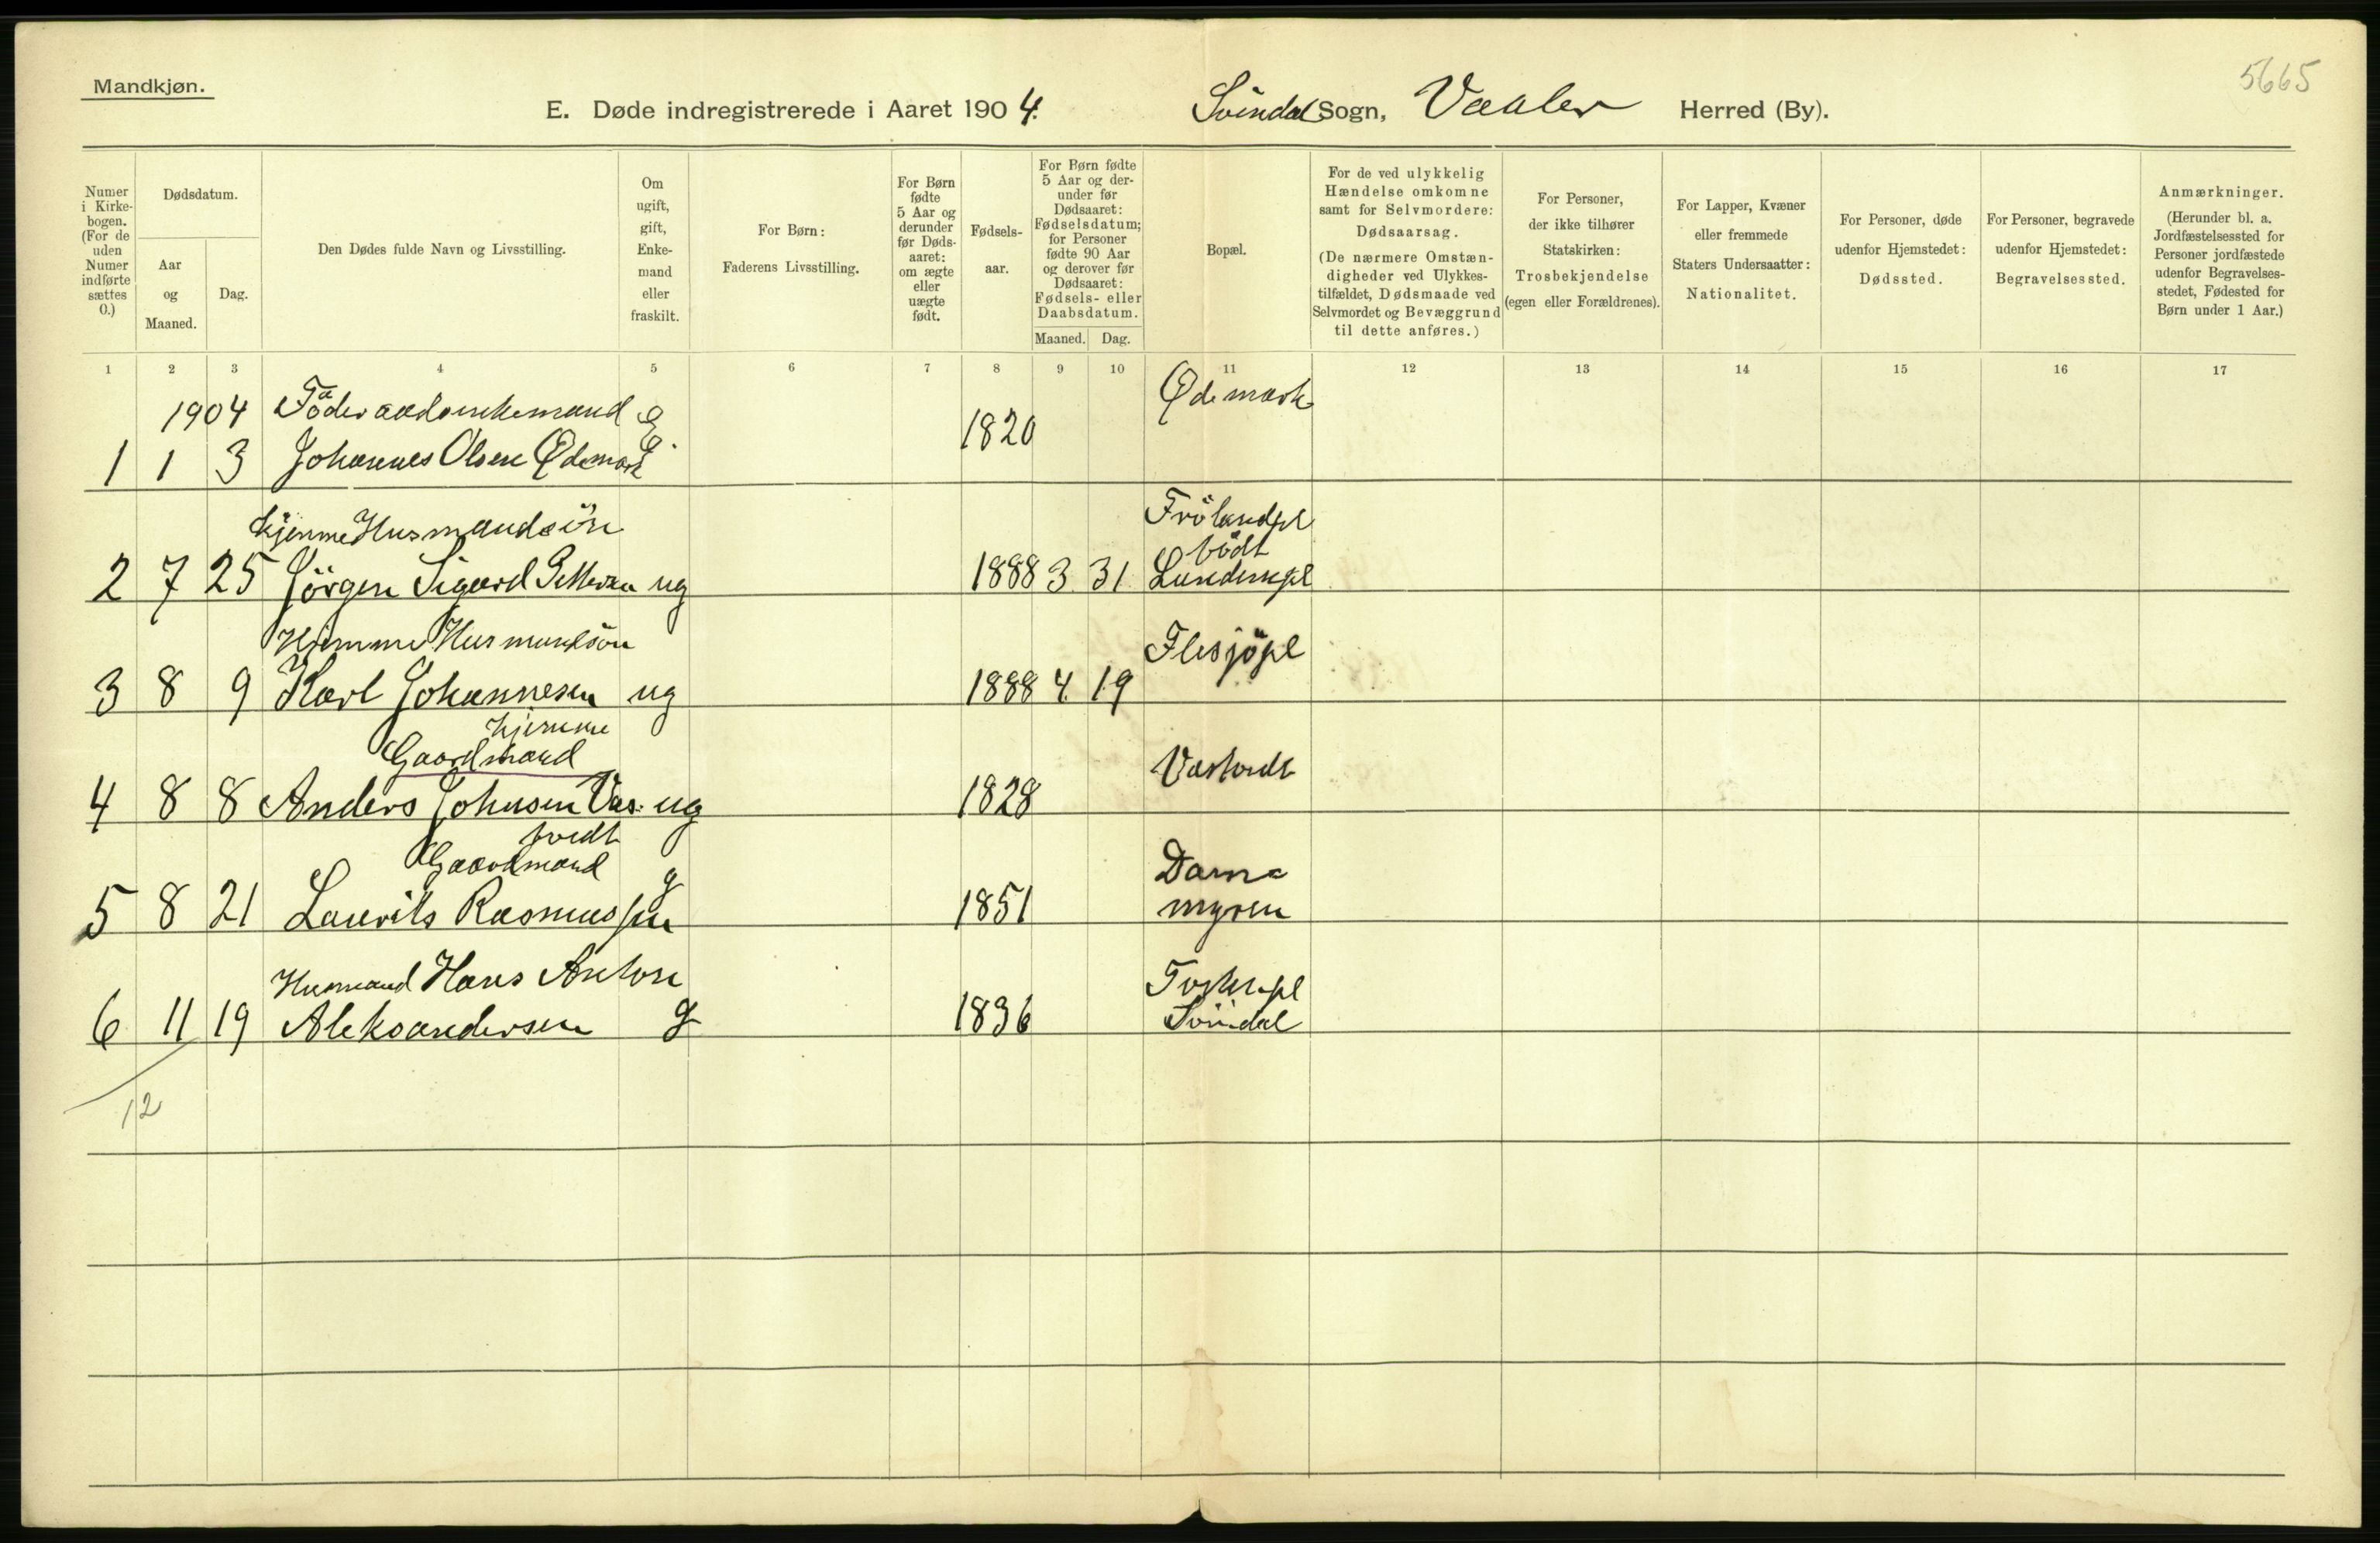 Mandkjøn.
5665
E. Døde indregistrerede i Aaret 1904. Svindal Sogn, Vaaler Herred (By).
Numer i Kirkebogen. (For de uden Numer indførte sættes 0.)
Dødsdatum.
Aar og Maaned.
Dag.
Den Dødes fulde Navn og Livsstilling.
Om ugift, gift, Enkemand eller fraskilt.
For Børn: Faderens Livsstilling.
For Børn fødte 5 Aar og derunder før Dødsaaret: om ægte eller uægte født.
Fødselsaar.
For Børn fødte 5 Aar og derunder før Dødsaaret: Fødselsdatum; for Personer fødte 90 Aar og derover før Dødsaaret: Fødsels- eller Daabsdatum.
Maaned. Dag.
Bopæl.
For de ved ulykkelig Hændelse omkomne samt for Selvmordere: Dødsaarsag. (De nærmere Omstændigheder ved Ulykkestilfældet, Dødsmaade ved Selvmordet og Bevæggrund til dette anføres.)
For Personer, der ikke tilhører Statskirken: Trosbekjendelse (egen eller Forældrenes).
For Lapper, Kvæner eller fremmede Staters Undersaatter: Nationalitet.
For Personer, døde udenfor Hjemstedet: Dødssted.
For Personer, begravede udenfor Hjemstedet: Begravelsessted.
Anmærkninger. (Herunder bl. a. Jordfæstelsessted for Personer jordfæstede udenfor Begravelsesstedet, Fødested for Børn under 1 Aar.)
1 2 3 4 5 6 7 8 9 10 11 12 13 14 15 16 17
1904 Föderaadsenkemand E Ødemark
1 1 3 Johannes Olsen Ødemark E. 1820
hjemme Husmandsön Frölandpl
födt
2 7 25 Jörgen Sigard ug 1888 3 31 Lundempl
Hjemme Husmandsön Flesjöpl
3 8 9 Karl Johannesen ug 1888 4. 19
hjemme
Gaardmand Vastvedt
4 8 8 Anders Johnsen Vas- ug 1828
tvedt
Gaardmand g Dams
5 8 21 Laurits Rasmussen 1851 myren
Husmand Hans Anton
6 11 19 Aleksandersen g 1836 Svindal
12